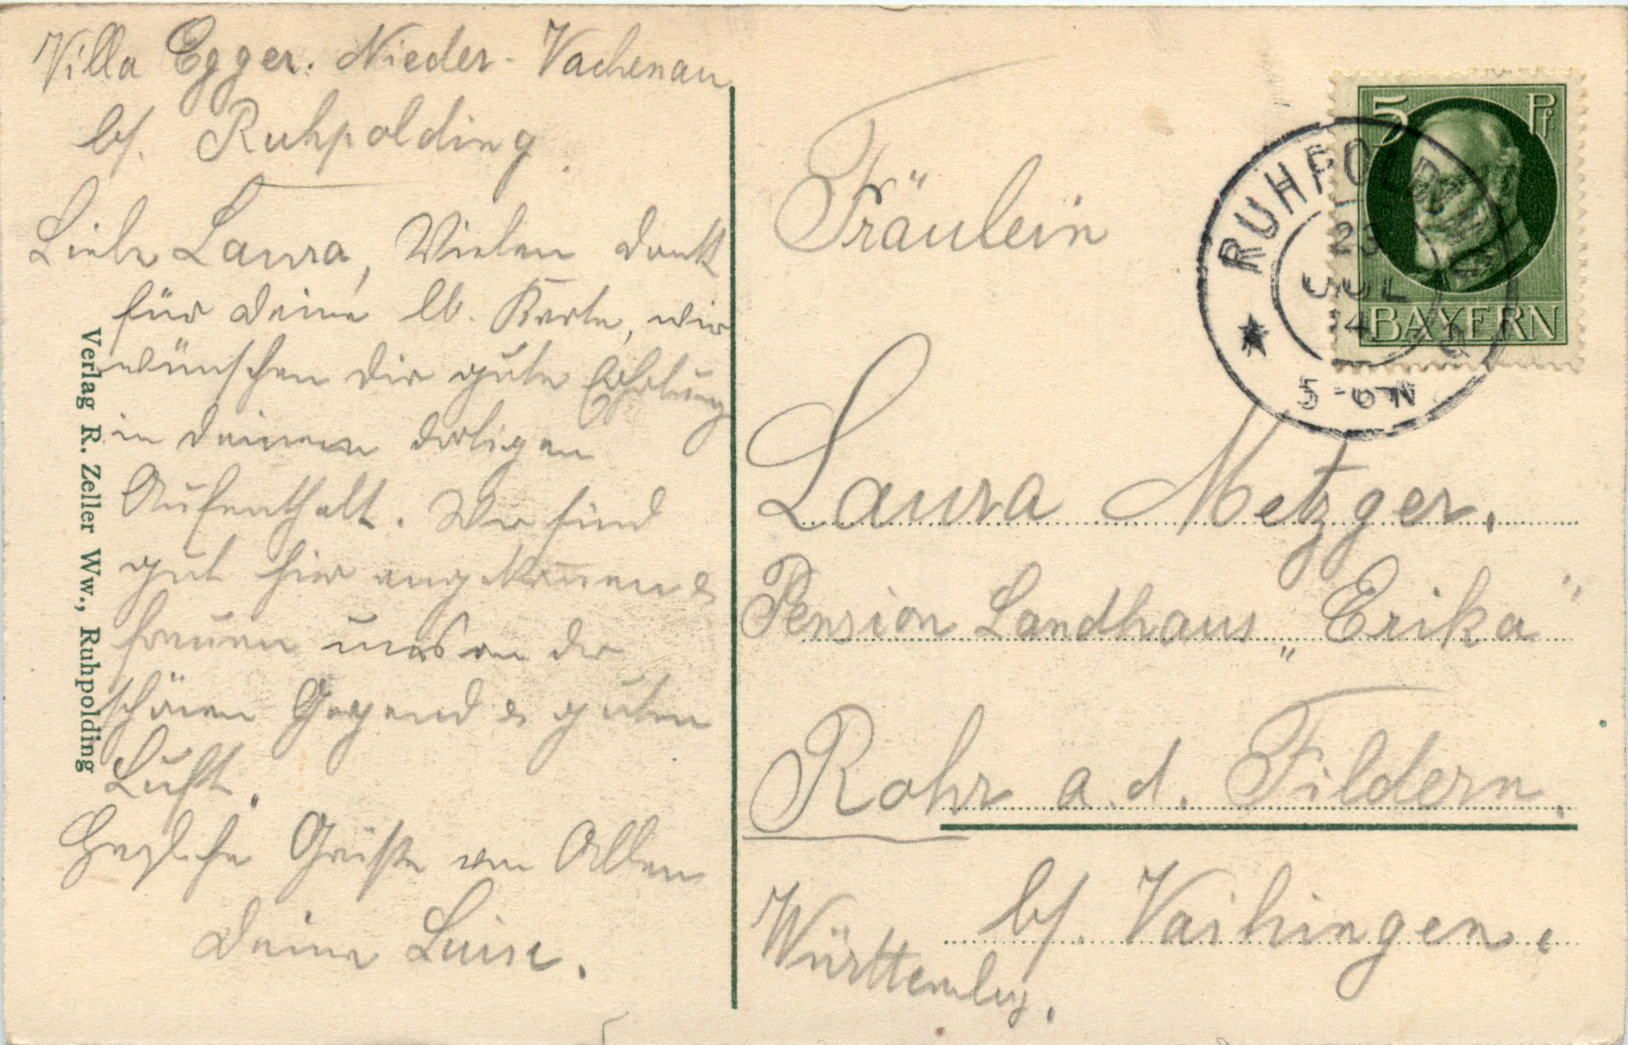 Villa Egger. Nieder-Vachenau
b/. Ruhpolding.
Liebe Laura, Vielen Dank
für Deine lb. Karte, wir
wünschen Dir gute Erholung
in Deinem dortigen
Aufenthalt. Wir sind
gut hier angekom̅en &
freuen uns an der
schönen Gegend & guten
Luft.
Herzliche Grüße von Allen
Deine Luise.
Verlag R. Zeller Ww., Ruhpolding
5 Pf
BAYERN
RUHPOLDING
29
JUL
14
5-6 N
Fräulein
Laura Metzger.
Pension Landhaus „Erika"
Rohr a. d. Fildern.
b/. Vaihingen.
Württembg.